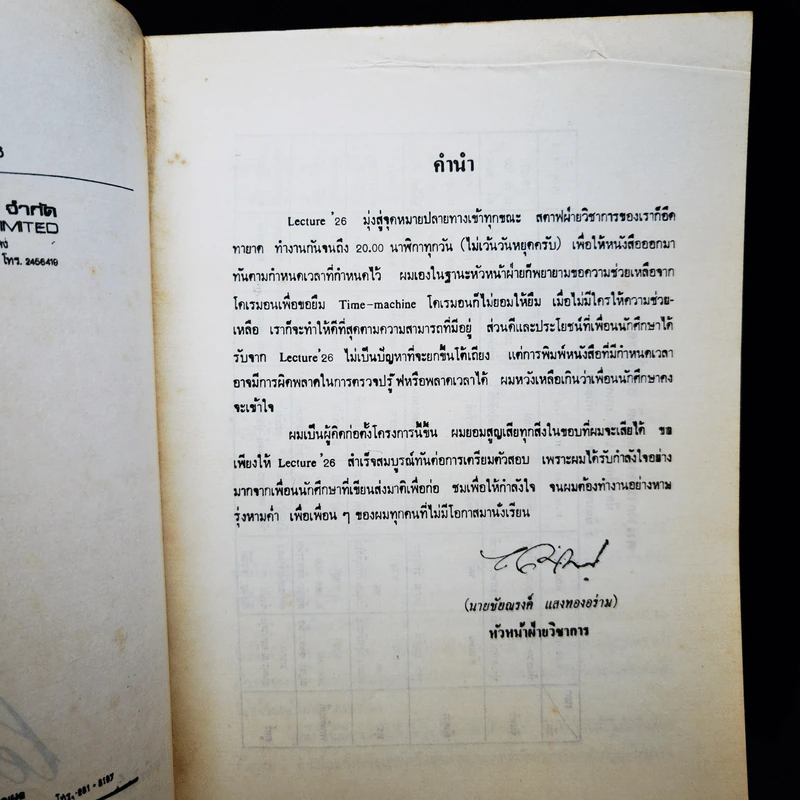 จำกัด
IMITED
โทร. 2456419
คำนำ
Lecture '26 มุ่งสู่จุดหมายปลายทางเข้าทุกขณะ สตาฟฝ่ายวิชาการของเราก็อึด
ทายาด ทำงานกันจนถึง 20.00 นาฬิกาทุกวัน (ไม่เว้นวันหยุดครับ) เพื่อให้หนังสือออกมา
ทันตามกำหนดเวลาที่กำหนดไว้ ผมเองในฐานะหัวหน้าฝ่ายก็พยายามขอความช่วยเหลือจาก
โดเรมอนเพื่อขอยืม Time-machine โดเรมอนก็ไม่ยอมให้ยืม เมื่อไม่มีใครให้ความช่วย-
เหลือ เราก็จะทำให้ดีที่สุดตามความสามารถที่มีอยู่ ส่วนดีและประโยชน์ที่เพื่อนนักศึกษาได้
รับจาก Lecture'26 ไม่เป็นปัญหาที่จะยกขึ้นโต้เถียง แต่การพิมพ์หนังสือที่มีกำหนดเวลา
อาจมีการผิดพลาดในการตรวจปรู๊ฟหรือพลาดเวลาได้ ผมหวังเหลือเกินว่าเพื่อนนักศึกษาคง
จะเข้าใจ
ผมเป็นผู้คิดก่อตั้งโครงการนี้ขึ้น ผมยอมสูญเสียทุกสิ่งในขอบที่ผมจะเสียได้ ขอ
เพียงให้ Lecture '26 สำเร็จสมบูรณ์ทันต่อการเตรียมตัวสอบ เพราะผมได้รับกำลังใจอย่าง
มากจากเพื่อนนักศึกษาที่เขียนส่งมาติเพื่อก่อ ชมเพื่อให้กำลังใจ จนผมต้องทำงานอย่างหาม
รุ่งหามค่ำ เพื่อเพื่อน ๆ ของผมทุกคนที่ไม่มีโอกาสมานั่งเรียน
(นายชัยณรงค์ แสงทองอร่าม)
หัวหน้าฝ่ายวิชาการ